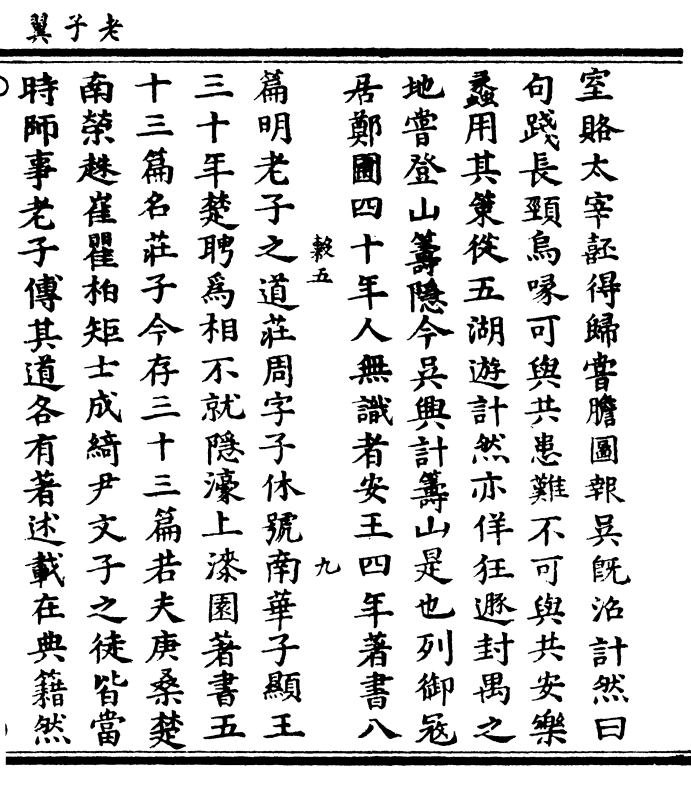 老子翼
室賂太宰嚭得歸嘗膽圖報吳既沼計然曰
句踐長頸烏喙可與共患難不可與共安樂
蠡用其策從五湖遊計然亦佯狂遯封禺之
地嘗登山籌隱今吳興計籌山是也列御寇
居鄭圃四十年人無識者安王四年著書八
敦五
九
篇明老子之道莊周字子休號南華子顯王
三十年楚聘爲相不就隱濠上漆園著書五
十三篇名莊子今存三十三篇若夫庚桑楚
南榮趎崔瞿柏矩士成綺尹文子之徒皆當
時師事老子傳其道各有著述載在典籍然